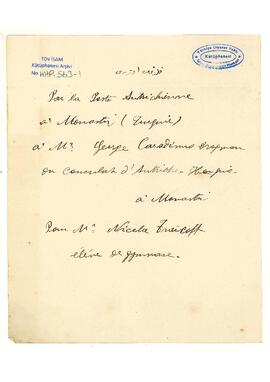 TDV İSAM
Kütüphanesi Arşivi
No HHP. 563-1
Türkiye Diyanet Vakfı
Kütüphanesi
Par la Poste Autrichienne
à Monastir (Turquie)
à Mr. George Caradimo drogman
du consulat d'Autriche-Hongrie
à Monastir
Pour Mr. Nicola Traicoff
élève de gymnase.